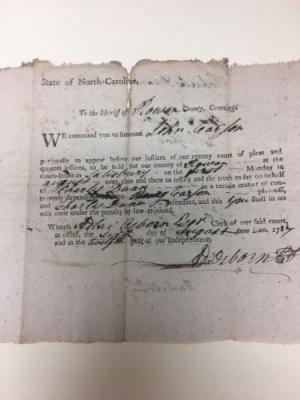 State of North-Carolina,
To the Sheriff of Rowan County, Greeting:
WE command you to summon John Carson
personally to appear before our justices of our county court of pleas and
quarter sessions, to be held for our county of Rowan at the
court-house in Salisbury on the first Monday in
august next, then and there to testify and the truth to say on behalf
of in a certain matter of con-
troversy depending
plaintiff, and Defendant, and this You shall in no
wise omit under the penalty by law enjoined.
Witness Adn: Osborn Esqr. Clerk of our said court,
at office, the day of August Anno Dom. 178
and in the twelfth year of our Independence.
Ad: Osborn